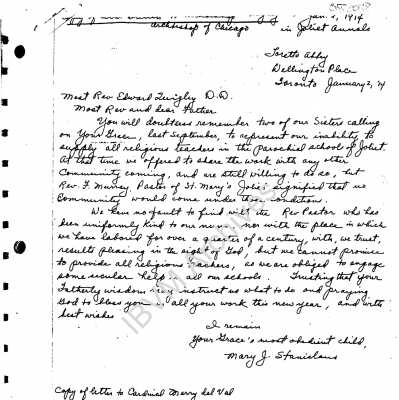 Jan. 2, 1914
Archbishop of Chicago in Joliet Annals
Loretto Abby
Wellington Place
Toronto January 2, 14
Most Rev Edward Quigley D.D.
Most Rev and dear Father.
You will doubtless remember two of our Sisters calling
on Your Grace, last September, to represent our inability to
supply all religious teachers in the parochial schools of Joliet
At that time we offered to share the work with any other
Community coming, and are still willing to do so, but
Rev. F. Murray, Pastor of St. Mary's Joliet signified that no
Community would come under that condition.
We have no fault to find with the Rev Pastor who has
been uniformly kind to our nor with the place in which
we have labored for over a quarter of a century, with, we trust,
results pleasing in the sight of God, but we cannot promise
to provide all religious teachers, as we are obliged to engage
some secular help in all our schools. Trusting that your
Fatherly wisdom may instruct us what to do and praying
God to bless you in all your work this new year, and with
best wishes
I remain
Your Grace's most obedient child,
Mary J. Stanislaus
Copy of letter to Cardinal Merry del Val
IBVM Archives